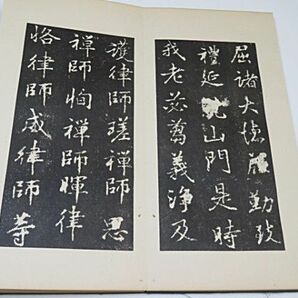 屈諸大德殷勤致
禮延就山門是時
我老苾蒭義淨及
護律師瑳禪師思
禪師恂禪師暉律
恪律師威律師等